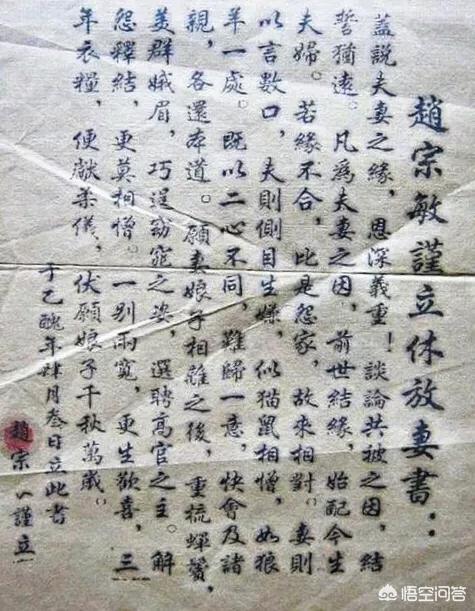 趙宗敏謹立休放妻書：
蓋說夫妻之緣，恩深義重！談論共被之因，結
誓猶遠。凡爲夫妻之因，前世結緣，始配今生
夫婦。若緣不合，此是怨家，故來相對。妻則
以言數口，夫則側目生嫌，似猫鼠相憎，如狼
羊一處。既以二心不同，難歸一意，快會及諸
親，各還本道。願妻娘子相離之後，重梳蟬鬢，
美群娥眉，巧逞窈窕之姿，選聘高官之主。解
怨釋結，更莫相憎。一別兩寬，更生歡喜，三
年衣糧，便獻柔儀，伏願娘子千秋萬歲。
于乙醜年肆月叁日立此書
趙宗謹立
悟空问答